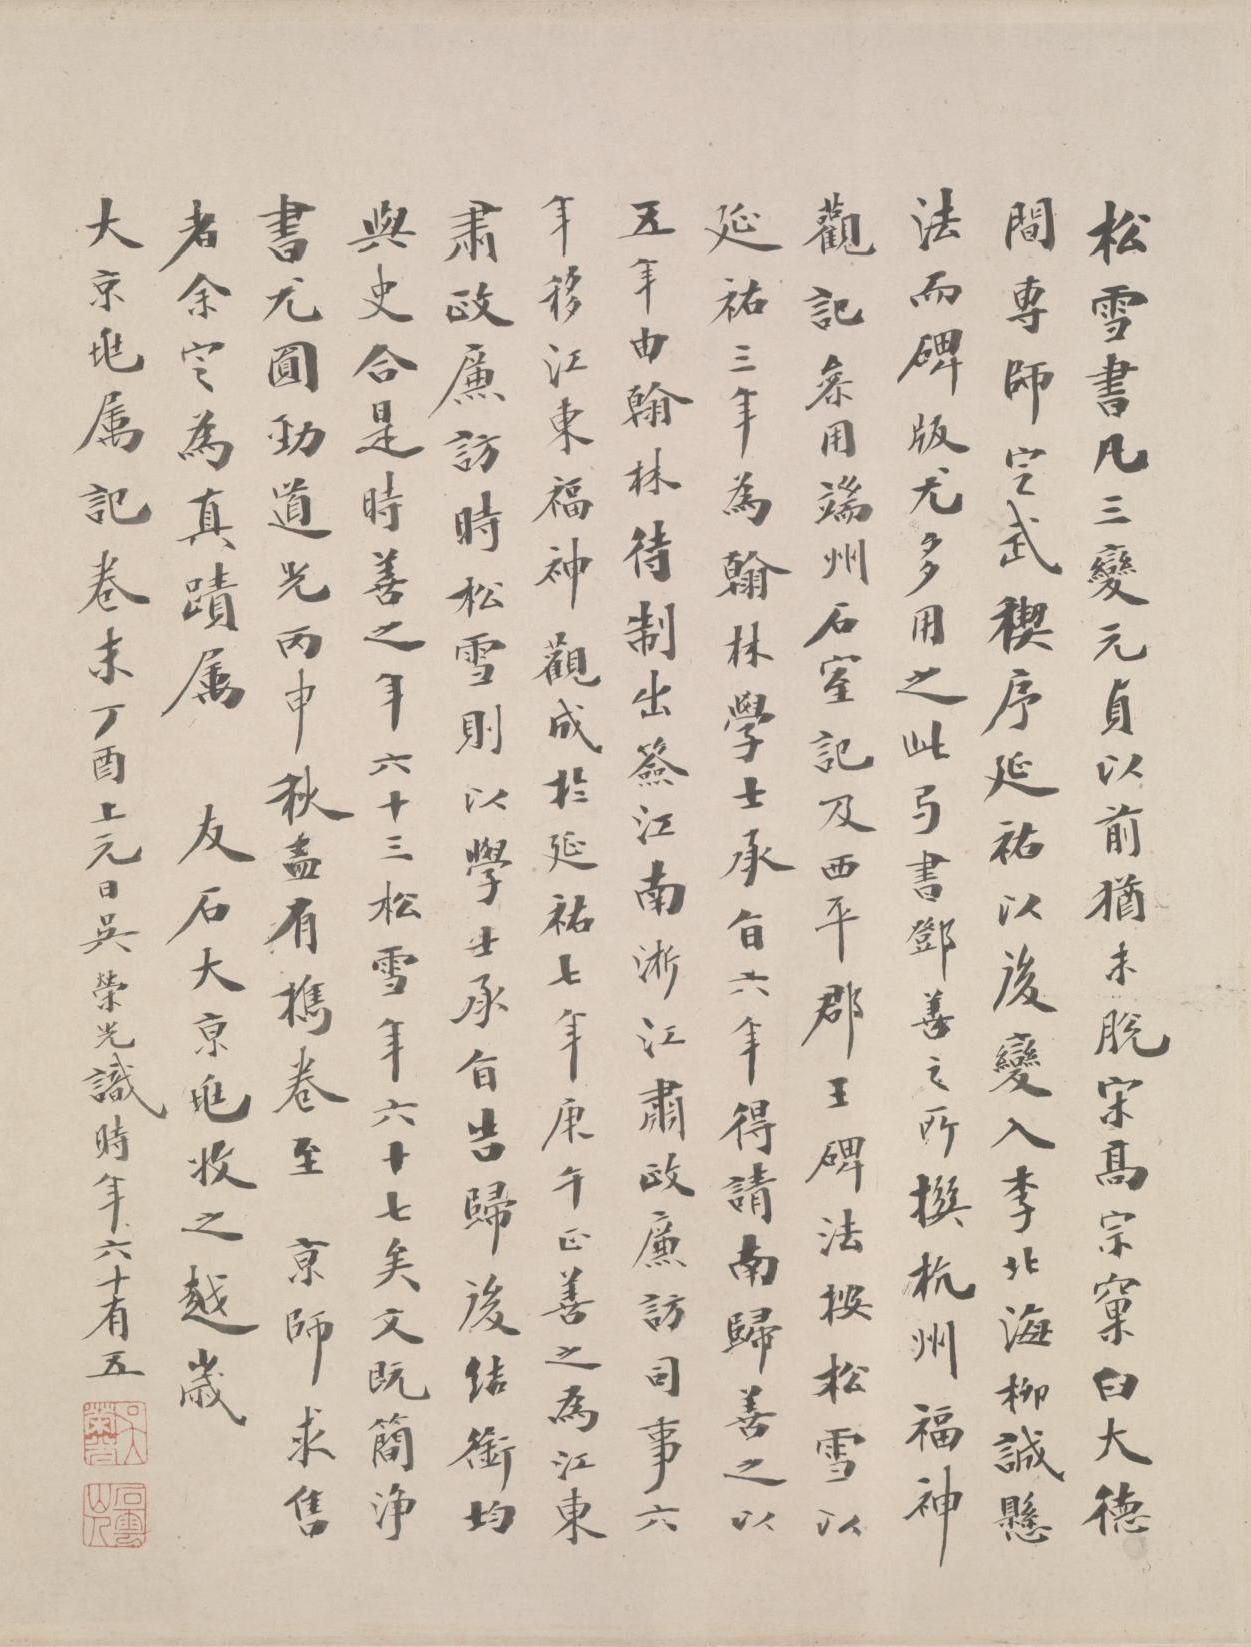 松雪書凡三變元貞以前猶未脫宋高宗窠臼大德
間専師定武稧序延祐以後變入李北海柳誠懸
法而碑版尤多用之此与書鄧善之所撰杭州福神
觀記叅用端州石室記及西平郡王碑法按松雪以
延祐三年為翰林學士承旨六年得請南歸善之以
五年由翰林待制出簽江南淅江肅政廉訪司事六
年移江東福神觀成於延祐七年庚午正善之為江東
肅政廉訪時松雪則以學士承旨告歸後结銜均
與史合是時善之年六十三松雪年六十七矣文既簡浄
書尤圓勁道光丙申秋盡有攜卷至京師求售
者余定為真蹟属友石大京兆收之越歲
大京兆属記卷末丁酉上元日吳榮光識時年六十有五
吳榮光
石雲山人